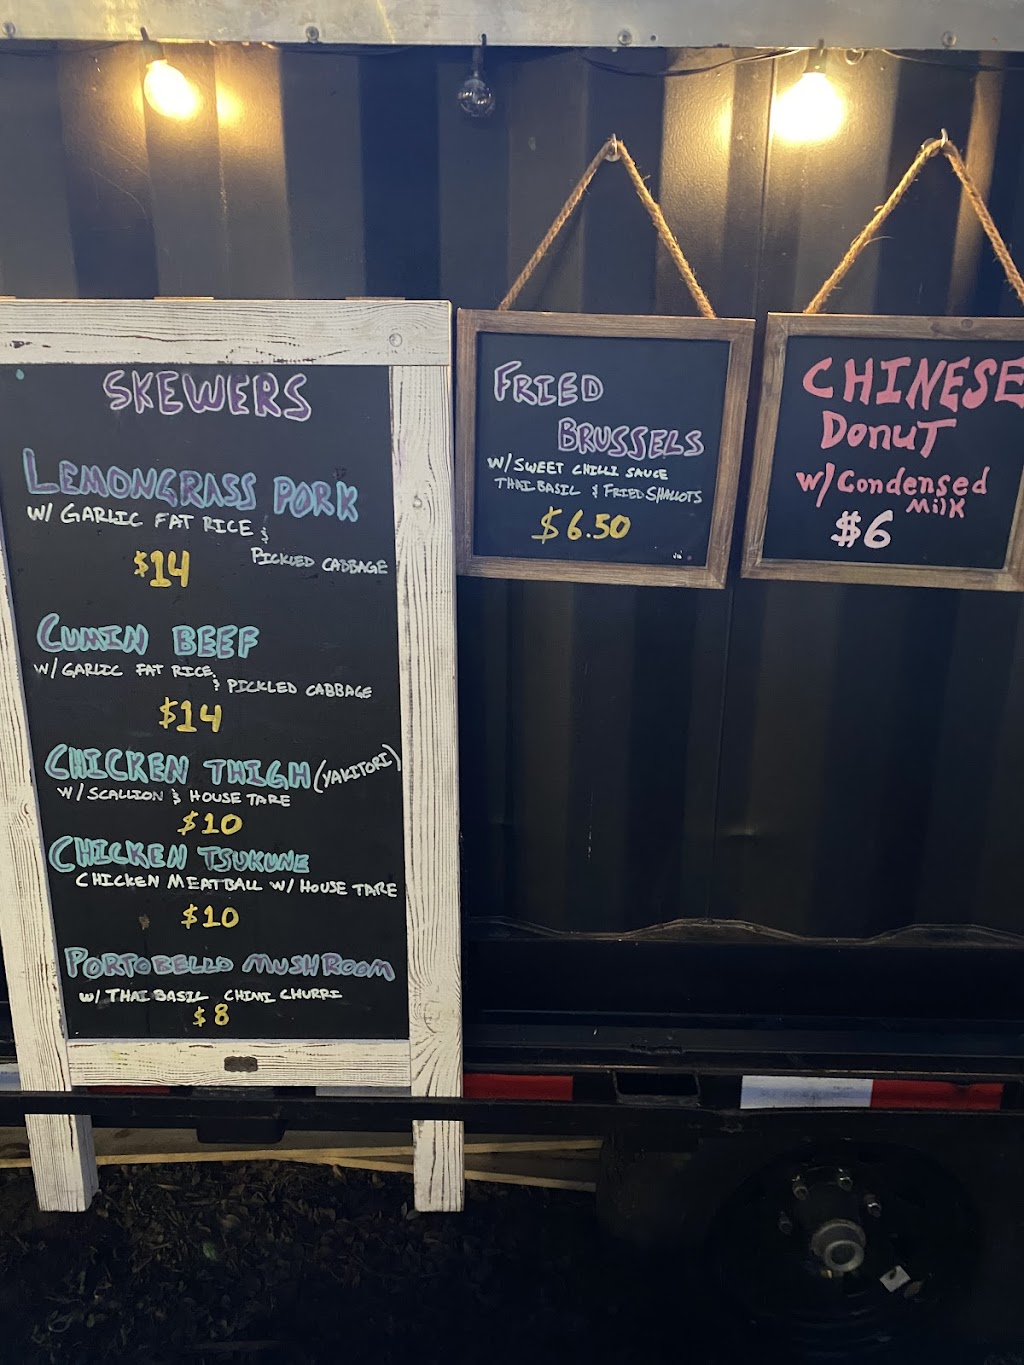 SKEWERS
LEMONGRASS PORK
W/ GARLIC FAT RICE &
PICKLED CABBAGE
$14
CUMIN BEEF
W/ GARLIC FAT RICE
& PICKLED CABBAGE
$14
CHICKEN THIGH (YAKITORI)
W/ SCALLION & HOUSE TARE
$10
CHICKEN TSUKUNE
CHICKEN MEATBALL W/ HOUSE TARE
$10
PORTOBELLO MUSHROOM
W/ THAI BASIL CHIMI CHURRI
$8
FRIED
BRUSSELS
W/ SWEET CHILLI SAUCE
THAI BASIL & FRIED SHALLOTS
$6.50
CHINESE
DONUT
W/ Condensed
MILK
$6